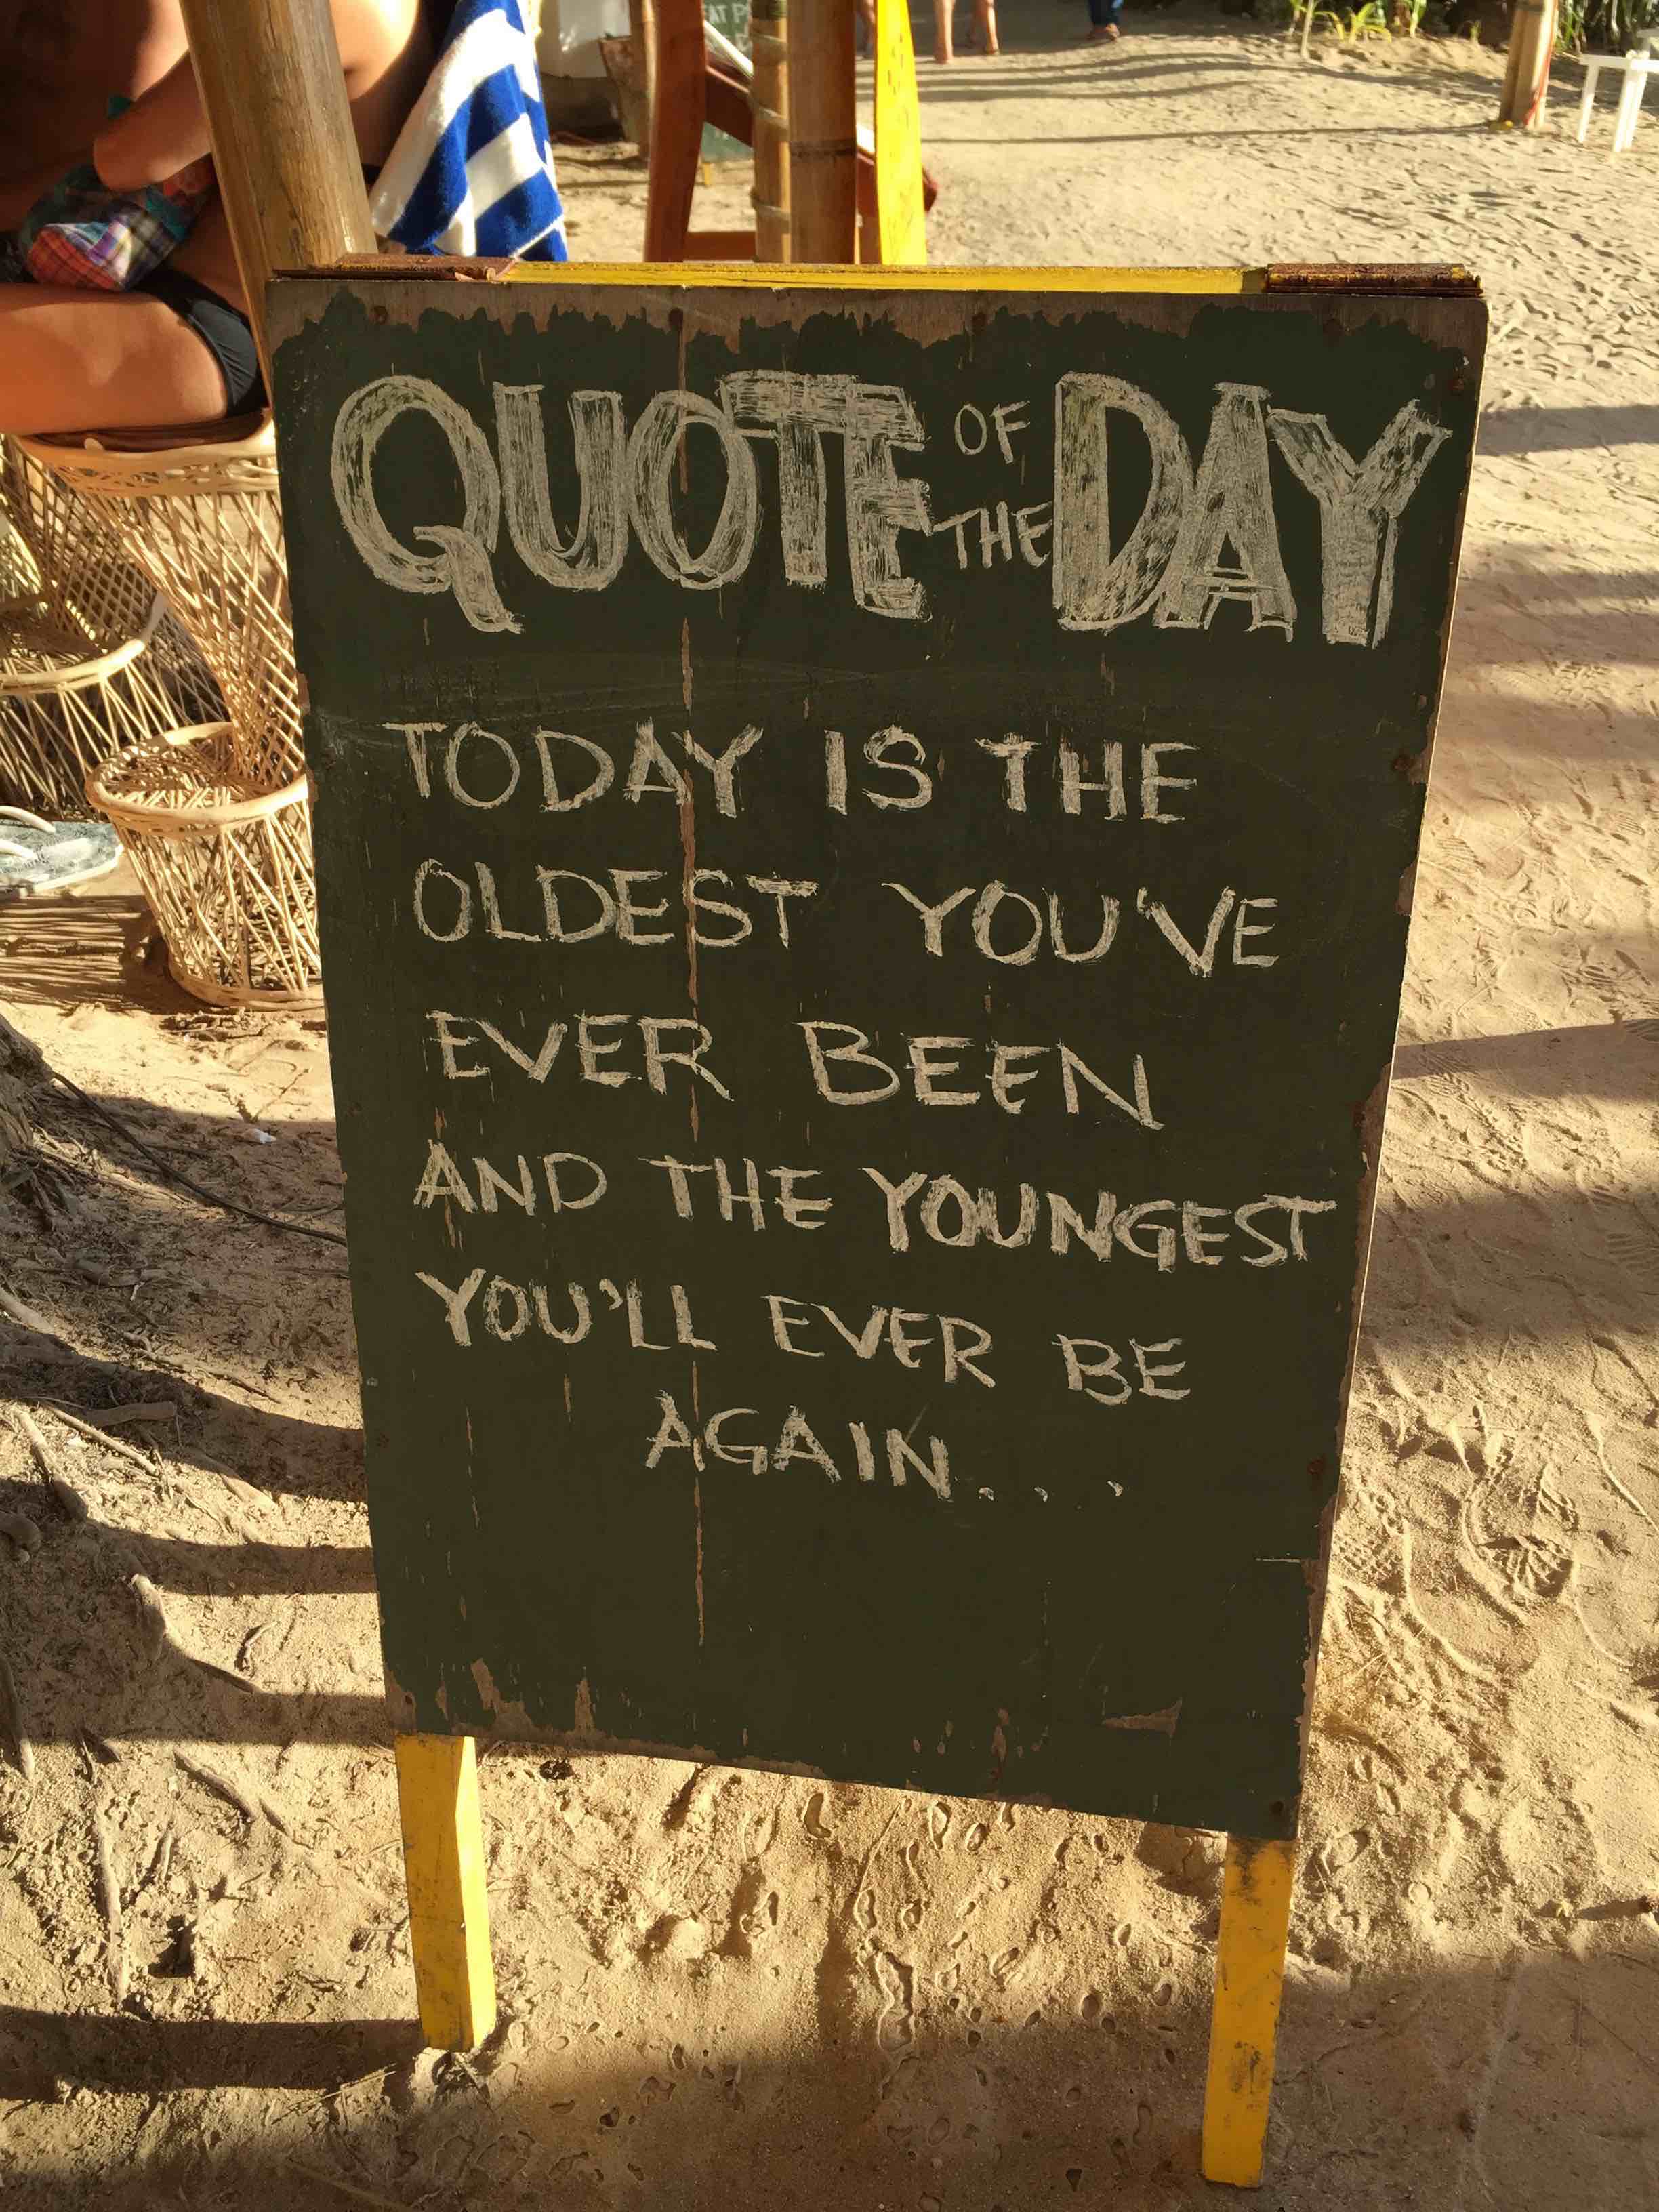 QUOTE OF THE DAY
TODAY IS THE
OLDEST YOU'VE
EVER BEEN
AND THE YOUNGEST
YOU'LL EVER BE
AGAIN...